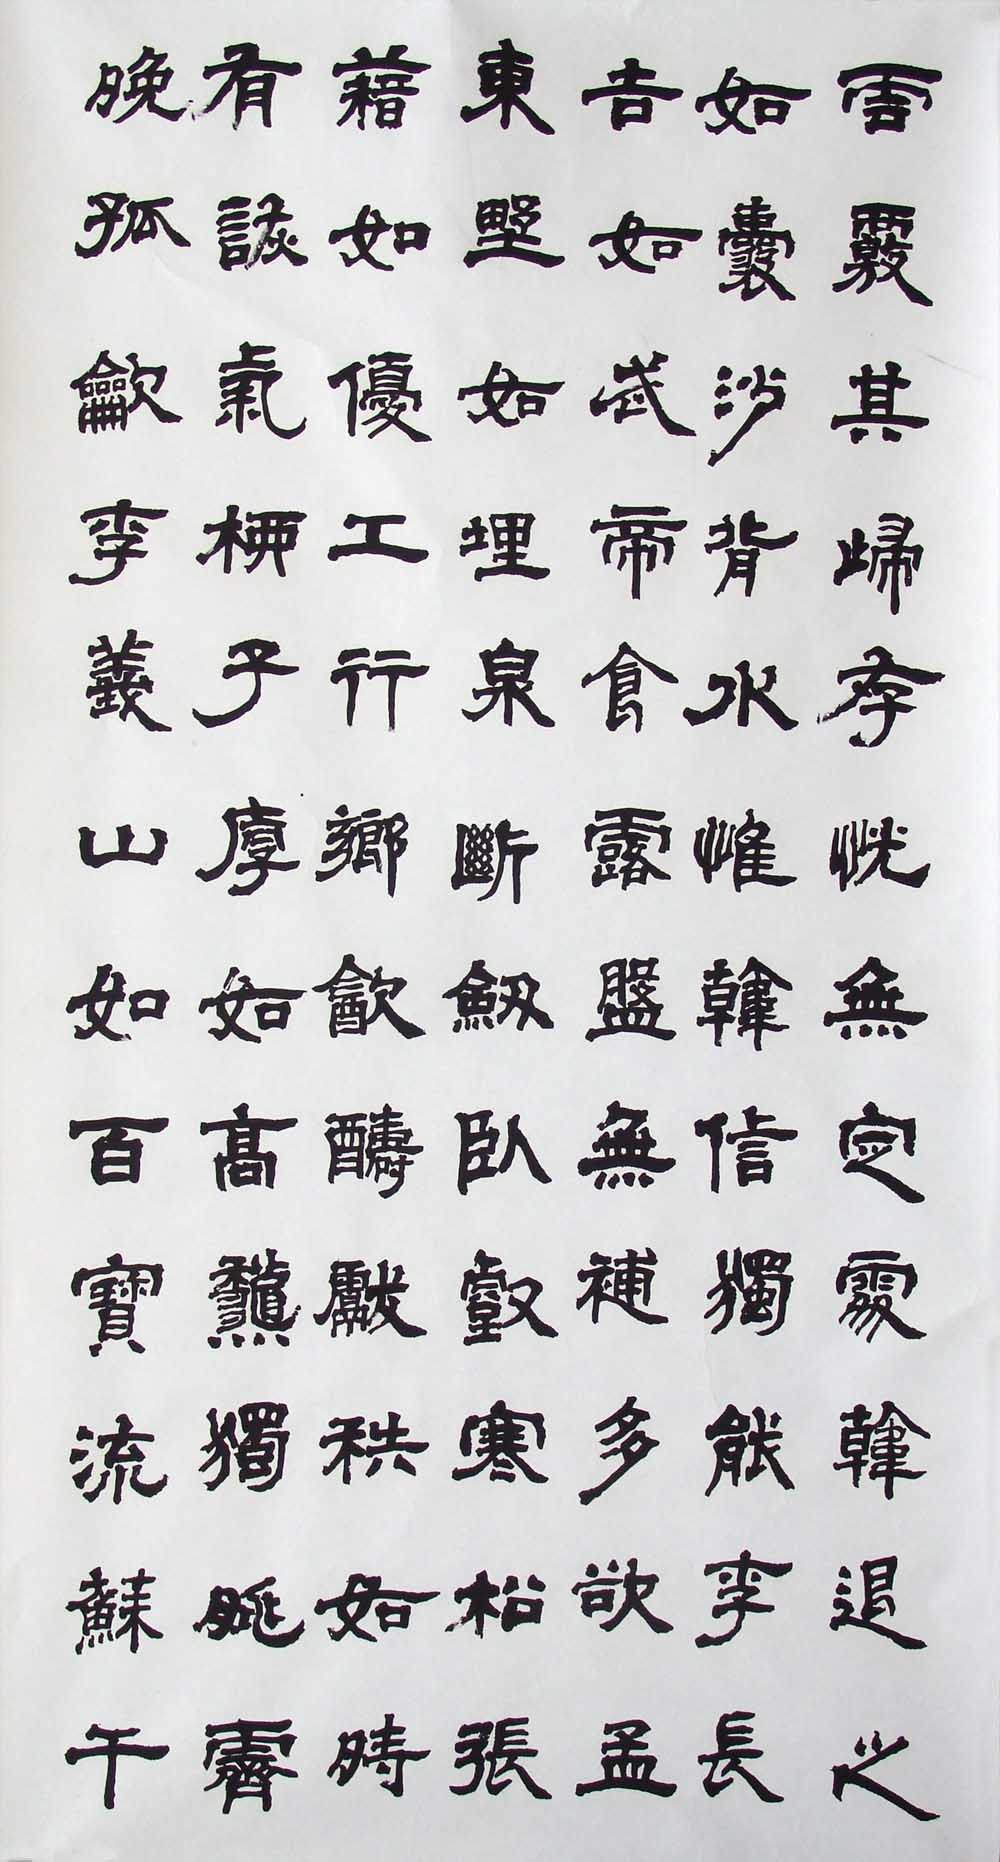 雲覈其歸存恍無定處韓退之
如囊沙背水惟韓信獨能李長
吉如武帝食露盤無補多欲孟
東墅如埋泉斷劒臥壑寒松張
藉如優工行鄉飲醻獻秩如時
有詼氣柳子厚如高龝獨眺霽
晚孤龡李義山如百寶流蘇千